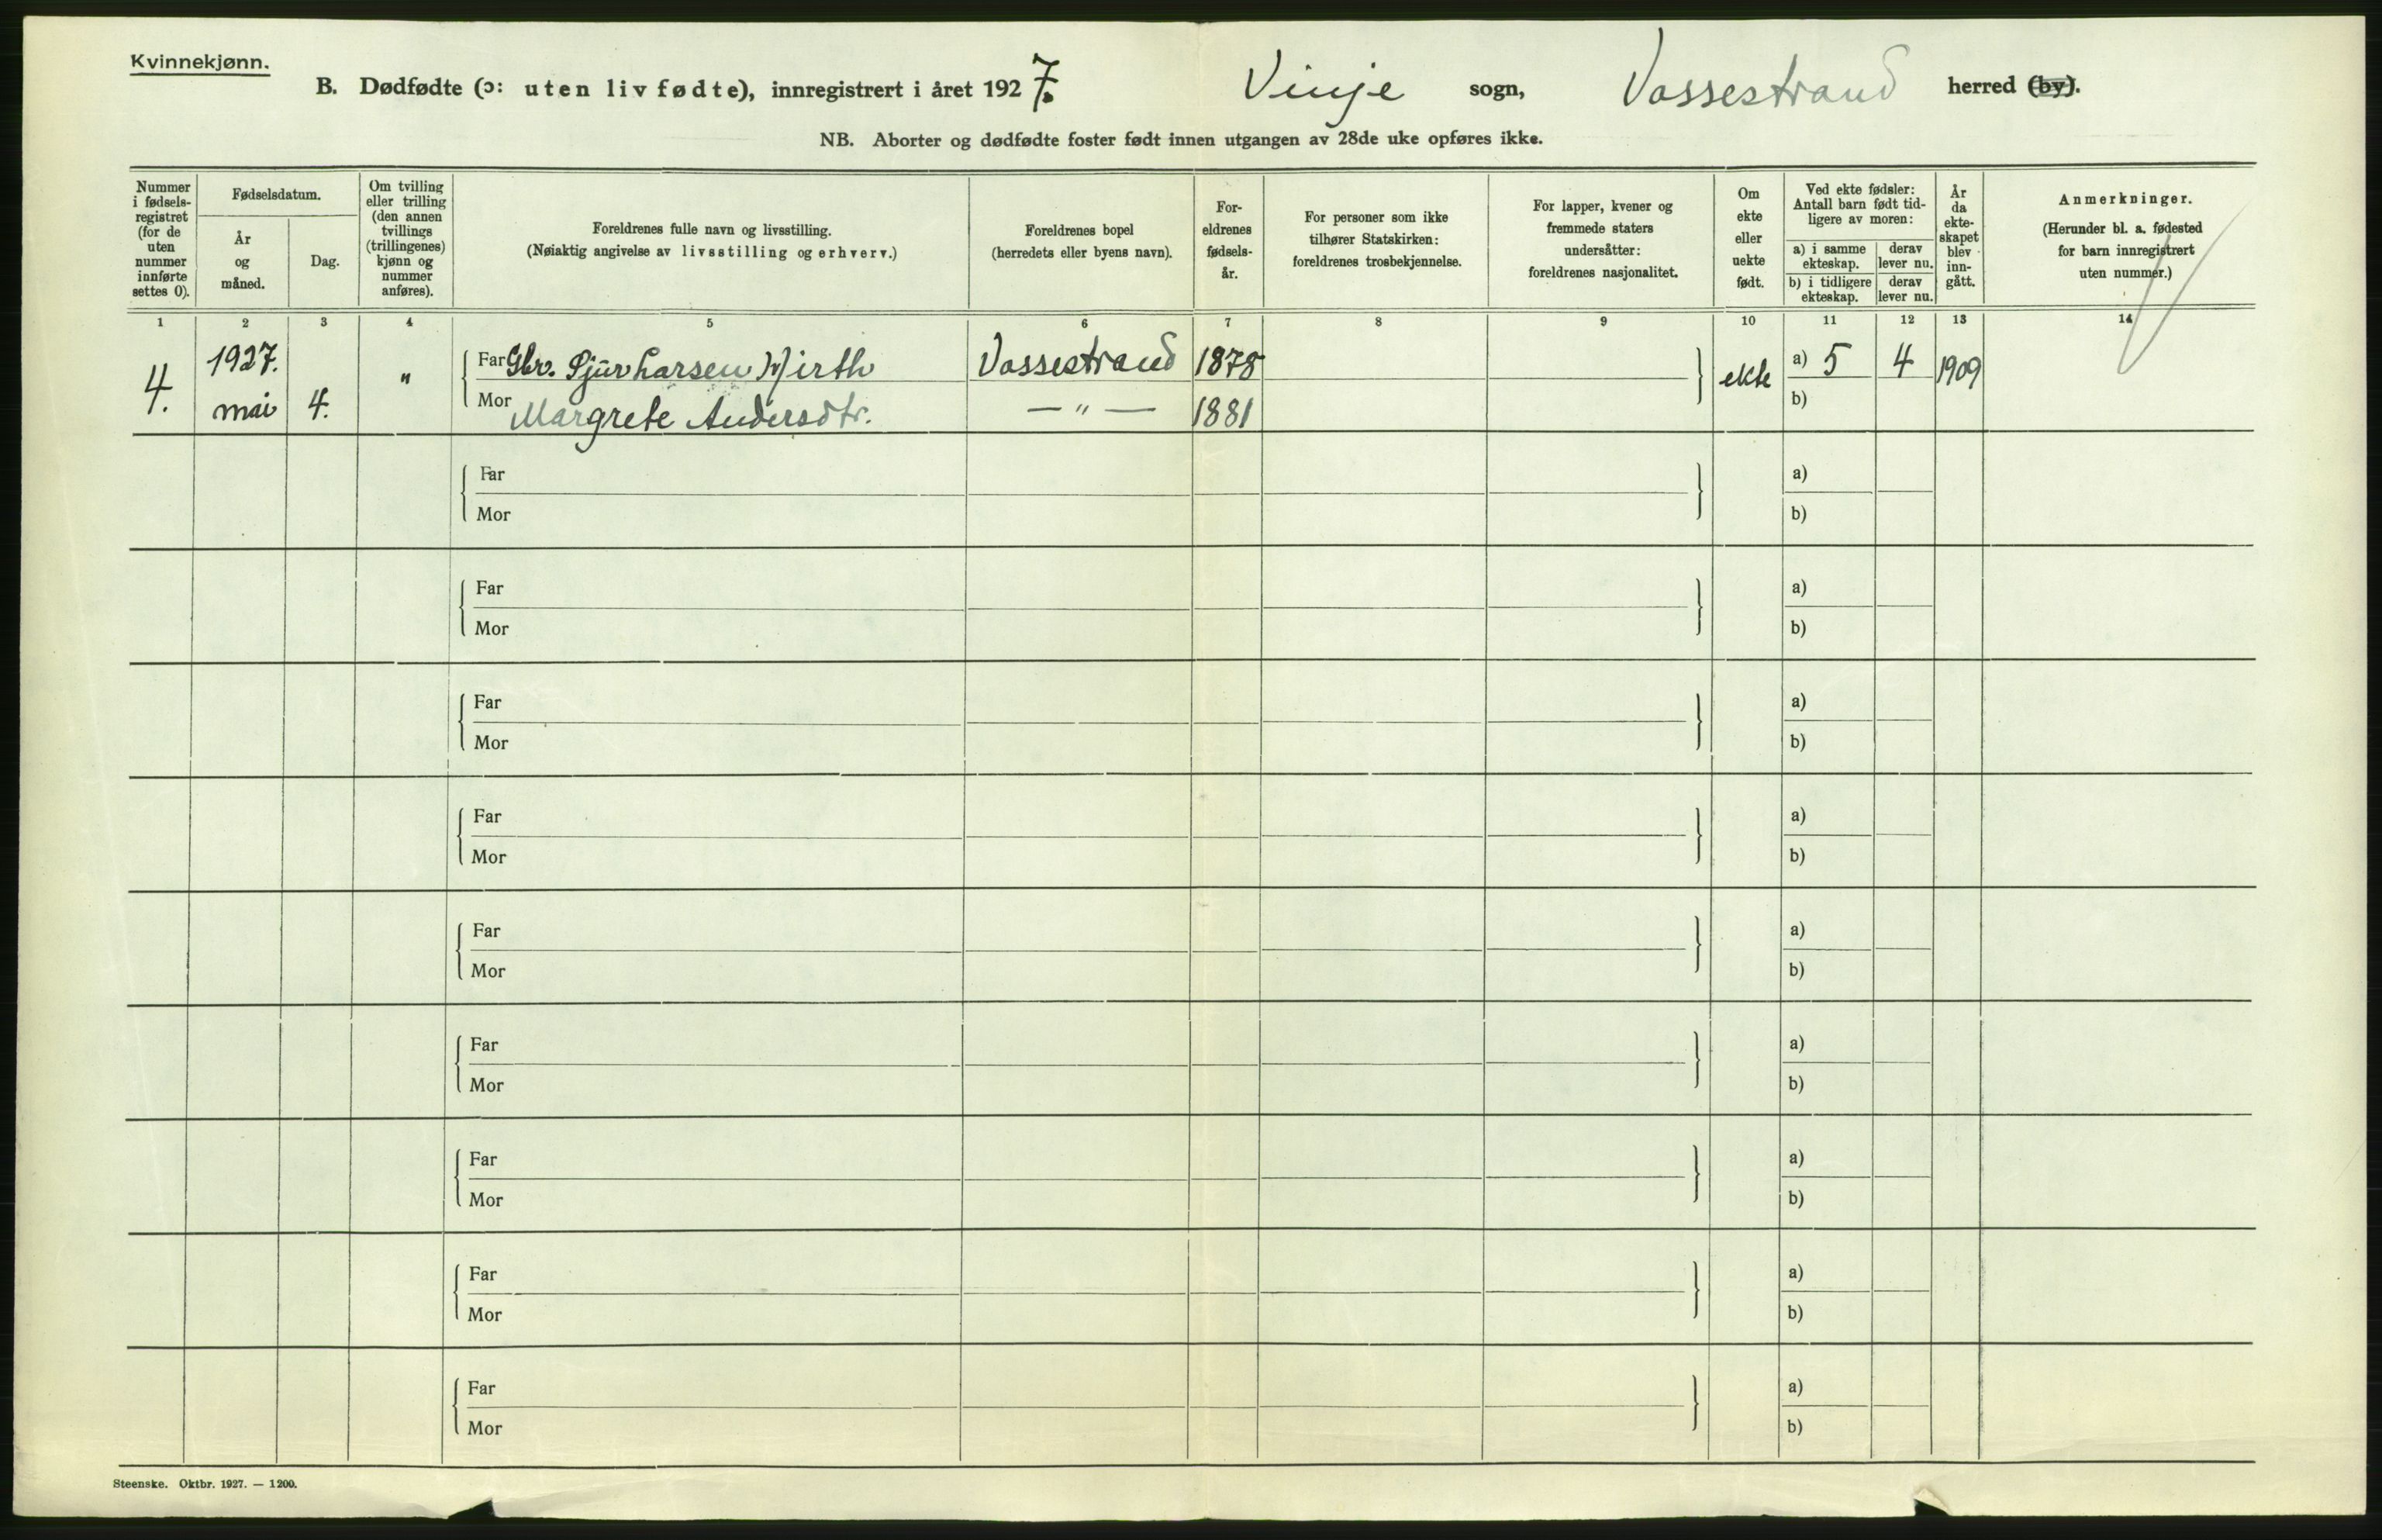 Kvinnekjønn.
B. Dødfødte (ɔ: uten liv fødte), innregistrert i året 1927. Vinje sogn, Vossestrand herred (by).
NB. Aborter og dødfødte foster født innen utgangen av 28de uke opføres ikke.
Nummer i fødselsregistret (for de uten nummer innførte settes 0).
Fødselsdatum.
År og måned.
Dag.
Om tvilling eller trilling (den annen tvillings (trillingenes) kjønn og nummer anføres).
Foreldrenes fulle navn og livsstilling.
(Nøiaktig angivelse av livsstilling og erhverv.)
Foreldrenes bopel
(herredets eller byens navn).
Foreldrenes fødselsår.
For personer som ikke tilhører Statskirken: foreldrenes trosbekjennelse.
For lapper, kvener og fremmede staters undersåtter: foreldrenes nasjonalitet.
Om ekte eller uekte født.
Ved ekte fødsler: Antall barn født tidligere av moren:
a) i samme ekteskap. derav lever nu.
b) i tidligere ekteskap. derav lever nu.
År da ekteskapet blev inngått.
Anmerkninger.
(Herunder bl. a. fødested for barn innregistrert uten nummer.)
1 2 3 4 5 6 7 8 9 10 11 12 13 14
4. 1927. mai 4. "
Far Gbr. Sjur Larsen Wirth Vossestrand 1878 ekte a) 5 4 1909
Mor Margrete Andersdtr. — " — 1881 b)
Far a)
Mor b)
Far a)
Mor b)
Far a)
Mor b)
Far a)
Mor b)
Far a)
Mor b)
Far a)
Mor b)
Far a)
Mor b)
Far a)
Mor b)
Far a)
Mor b)
Steenske. Oktbr. 1927. — 1200.